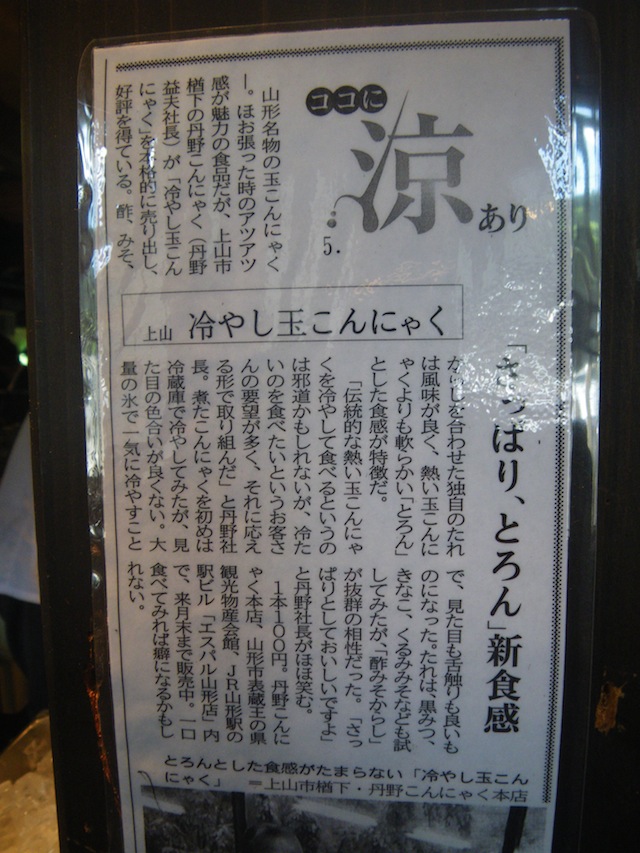 ココに
涼
あり
5.
山形名物の玉こんにゃく
ー。ほお張った時のアツアツ
感が魅力の食品だが、上山市
楢下の丹野こんにゃく（丹野
益夫社長）が「冷やし玉こん
にゃく」を本格的に売り出し、
好評を得ている。酢、みそ、
上山 冷やし玉こんにゃく
「さっぱり、とろん」新食感
からしを合わせた独自のたれ
は風味が良く、熱い玉こんに
ゃくよりも軟らかい「とろん」
とした食感が特徴だ。
「伝統的な熱い玉こんにゃ
くを冷やして食べるというの
は邪道かもしれないが、冷た
いのを食べたいというお客さ
んの要望が多く、それに応え
る形で取り組んだ」と丹野社
長。煮たこんにゃくを初めは
冷蔵庫で冷やしてみたが、見
た目の色合いが良くない。大
量の氷で一気に冷やすこと
で、見た目も舌触りも良いも
のになった。たれは、黒みつ、
きなこ、くるみみそなども試
してみたが、「酢みそからし」
が抜群の相性だった。「さっ
ぱりとしておいしいですよ」
と丹野社長がほほ笑む。
1本100円。丹野こんに
ゃく本店、山形市表蔵王の県
観光物産会館、JR山形駅の
駅ビル「エスパル山形店」内
で、来月末まで販売中。一口
食べてみれば癖になるかもし
れない。
とろんとした食感がたまらない「冷やし玉こん
にゃく」 ＝上山市楢下・丹野こんにゃく本店